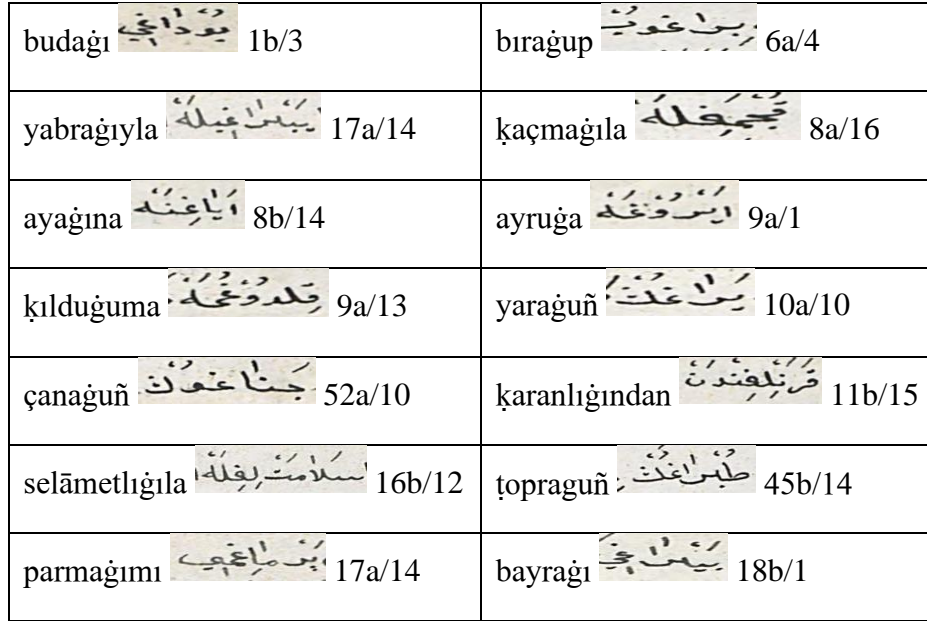 budaġı بوداغي 1b/3 bıraġup براغوب 6a/4
yabraġıyla يبراغيله 17a/14 ḳaçmaġıla قجمغله 8a/16
ayaġına اياغنه 8b/14 ayruġa ايروغه 9a/1
ḳılduġuma قلدوغمه 9a/13 yaraġuñ يراغك 10a/10
çanaġuñ جناغوك 52a/10 ḳaranlıġından قرنلغندن 11b/15
selāmetlıġıla سلامتلغله 16b/12 ṭopraguñ طبراغك 45b/14
parmaġımı برماغمي 17a/14 bayraġı بيراغي 18b/1